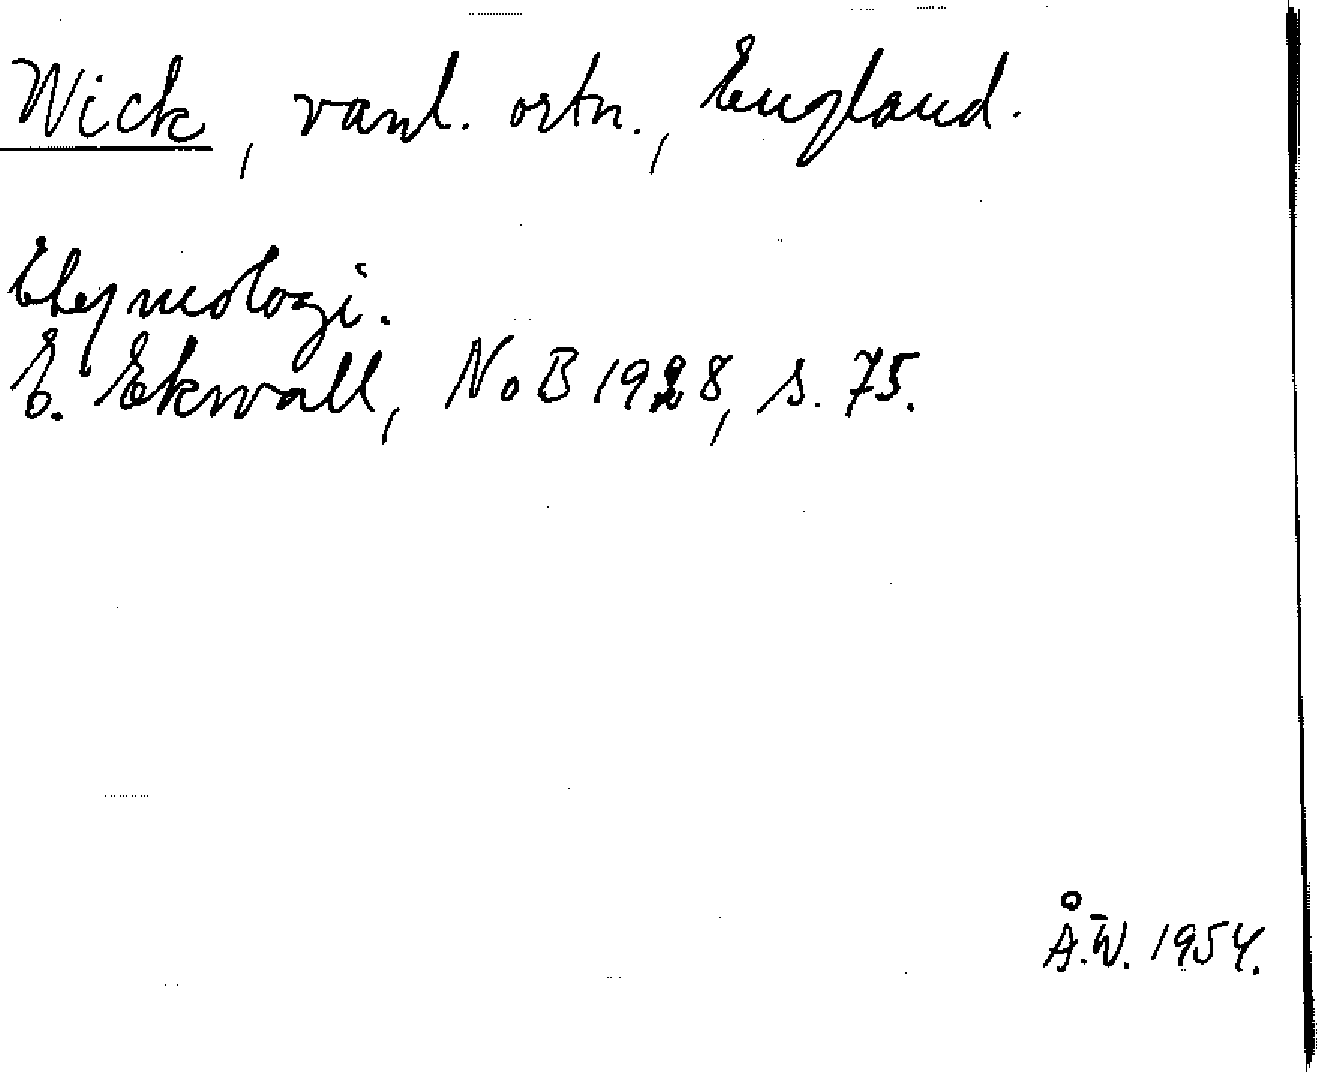 Wick, vanl. ortn., England.
Etymologi.
E. Ekwall, NoB 1928, s. 75.
Å.W. 1954.